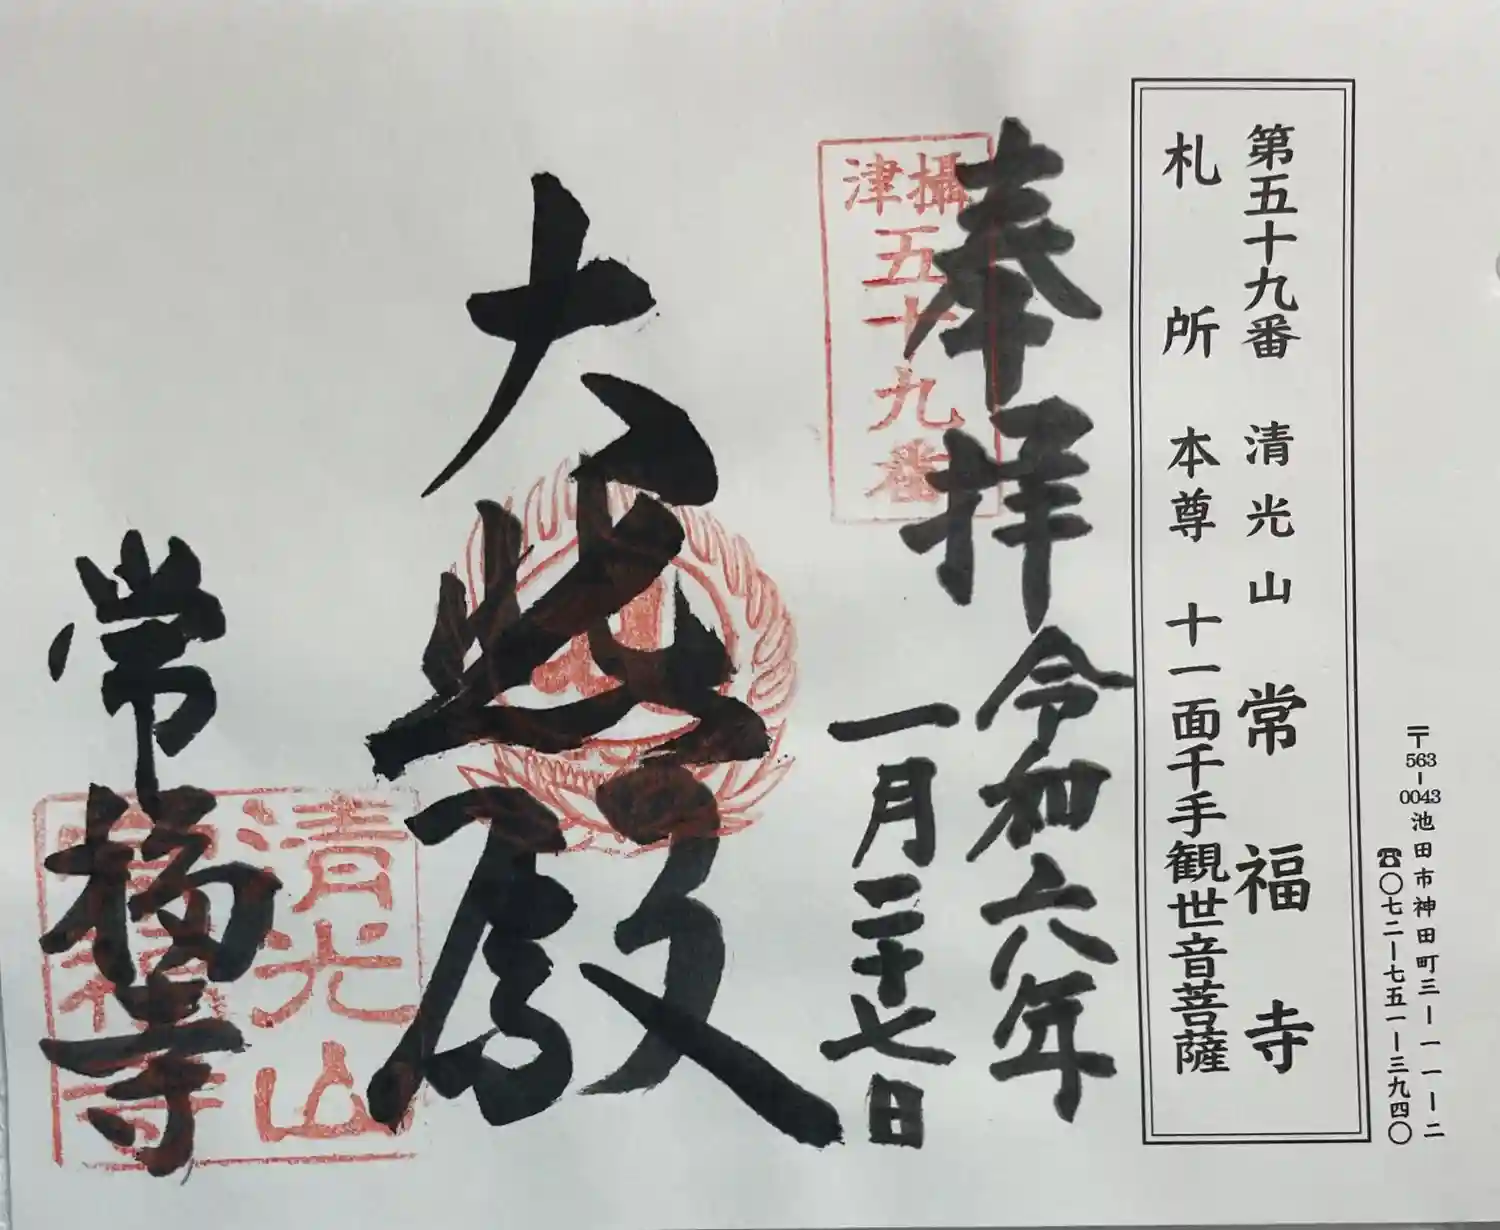 〒563-0043池田市神田町三ー一一ー二
☎〇七二ー七五一ー三九四〇
第五十九番 清光山 常福寺
札所 本尊 十一面千手観世音菩薩
奉拝
令和六年
一月二十七日
攝津
五十九番
大悲殿
常福寺
清光山
常福寺